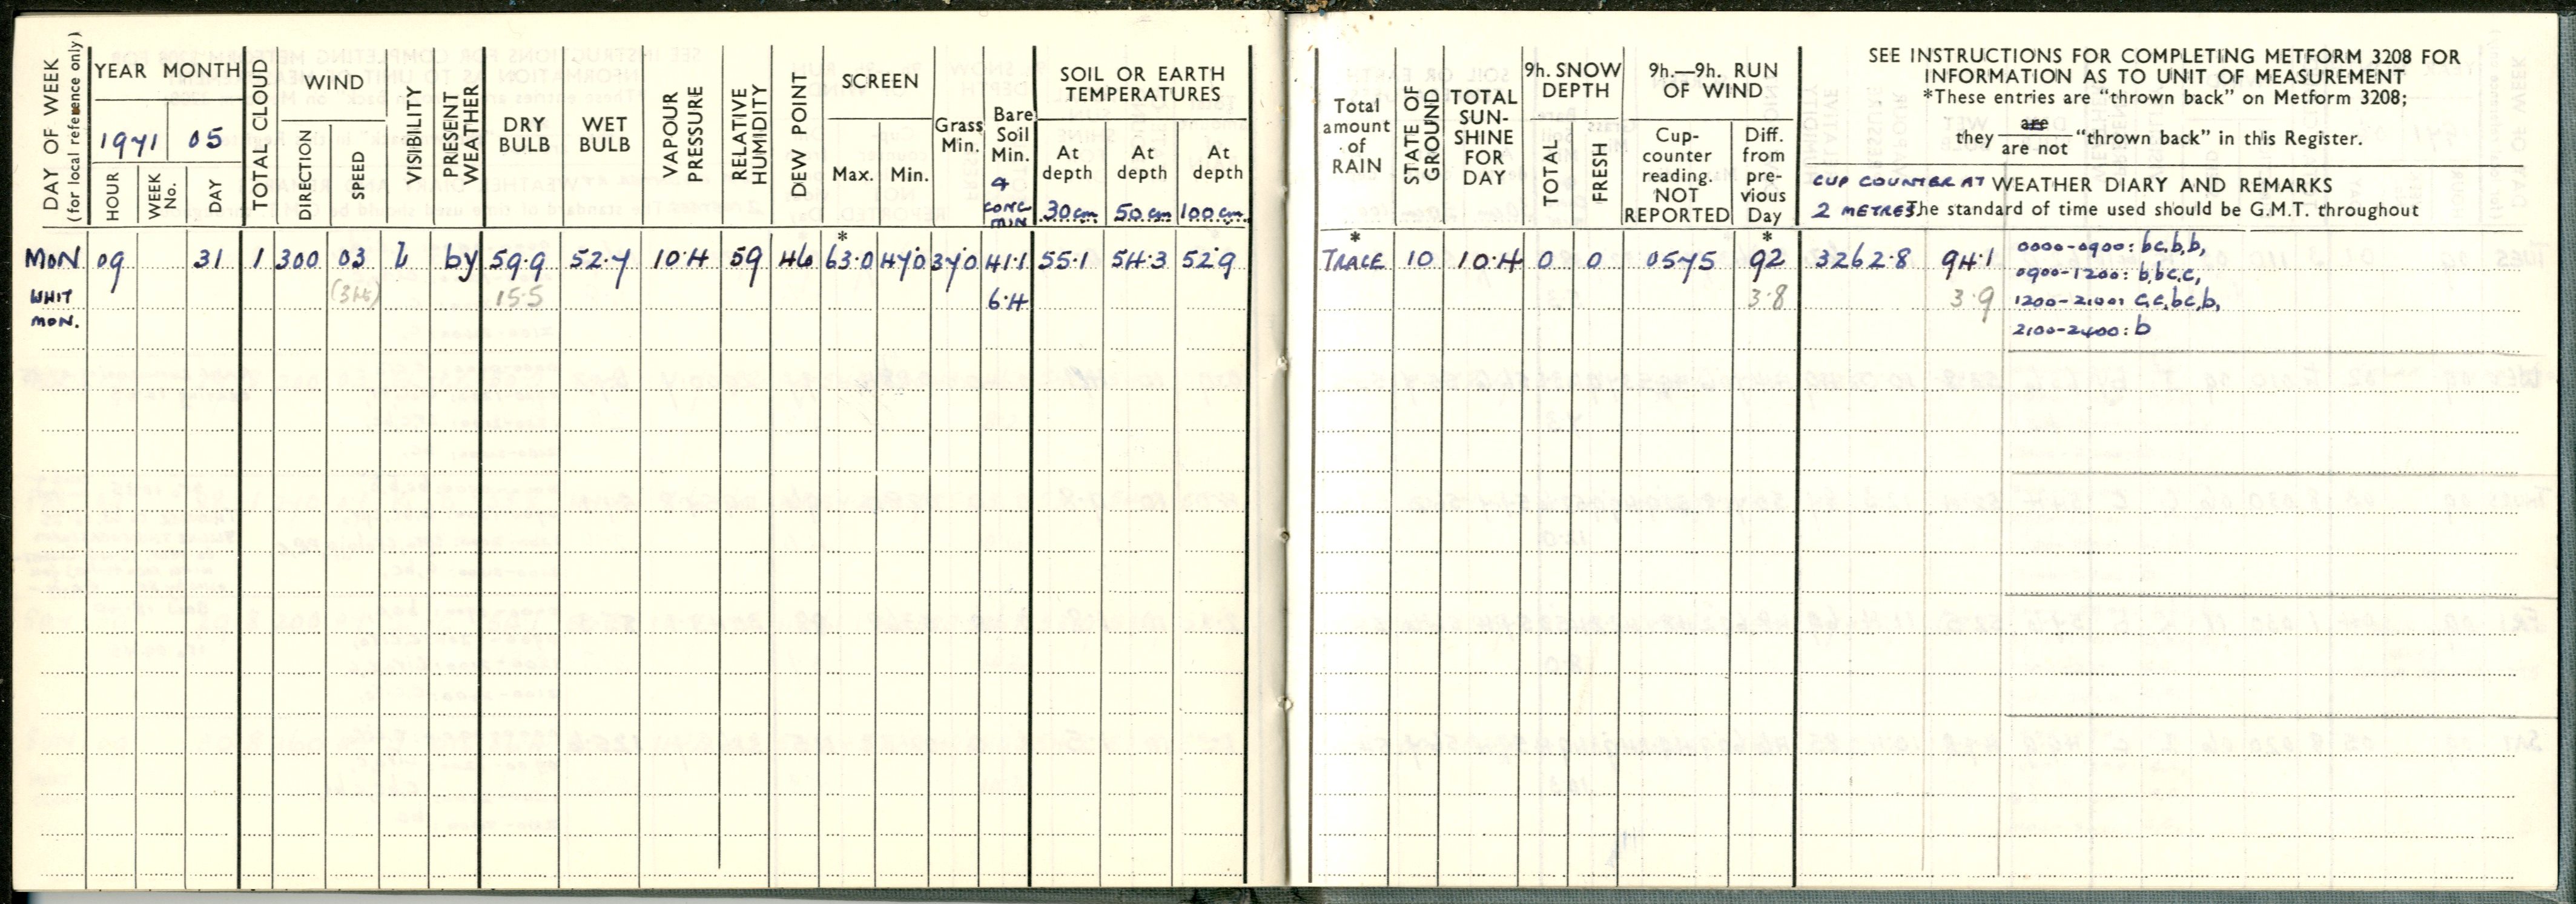 DAY OF WEEK
(for local reference only)
YEAR MONTH
1971 05
HOUR
WEEK No.
DAY
TOTAL CLOUD
WIND
DIRECTION
SPEED
VISIBILITY
PRESENT WEATHER
DRY BULB
WET BULB
VAPOUR PRESSURE
RELATIVE HUMIDITY
DEW POINT
SCREEN
Max. Min.
Grass Min.
Bare Soil Min.
CONC MIN
SOIL OR EARTH TEMPERATURES
At depth At depth At depth
30cm 50cm 100cm
MON 09 31 1 300 03 by 59.9 52.7 10.4 59 46 *63.0 47.0 37.0 41.1 55.1 54.3 52.9
WHIT 15.5 6.4
MON.
Total amount of RAIN
STATE OF GROUND
TOTAL SUN-SHINE FOR DAY
9h. SNOW DEPTH
TOTAL
FRESH
9h.—9h. RUN OF WIND
Cup-counter reading. NOT REPORTED
Diff. from pre-vious Day
SEE INSTRUCTIONS FOR COMPLETING METFORM 3208 FOR
INFORMATION AS TO UNIT OF MEASUREMENT
*These entries are “thrown back” on Metform 3208;
they are / are not “thrown back” in this Register.
CUP COUNTER AT WEATHER DIARY AND REMARKS
2 METRES The standard of time used should be G.M.T. throughout
*TRACE 10 10.4 0 0 0575 *92 3262.8 94.1 0000-0900: bc,b,b,
0900-1200: b,bc,c,
3.8 3.9 1200-2100: c,c,bc,b,
2100-2400: b